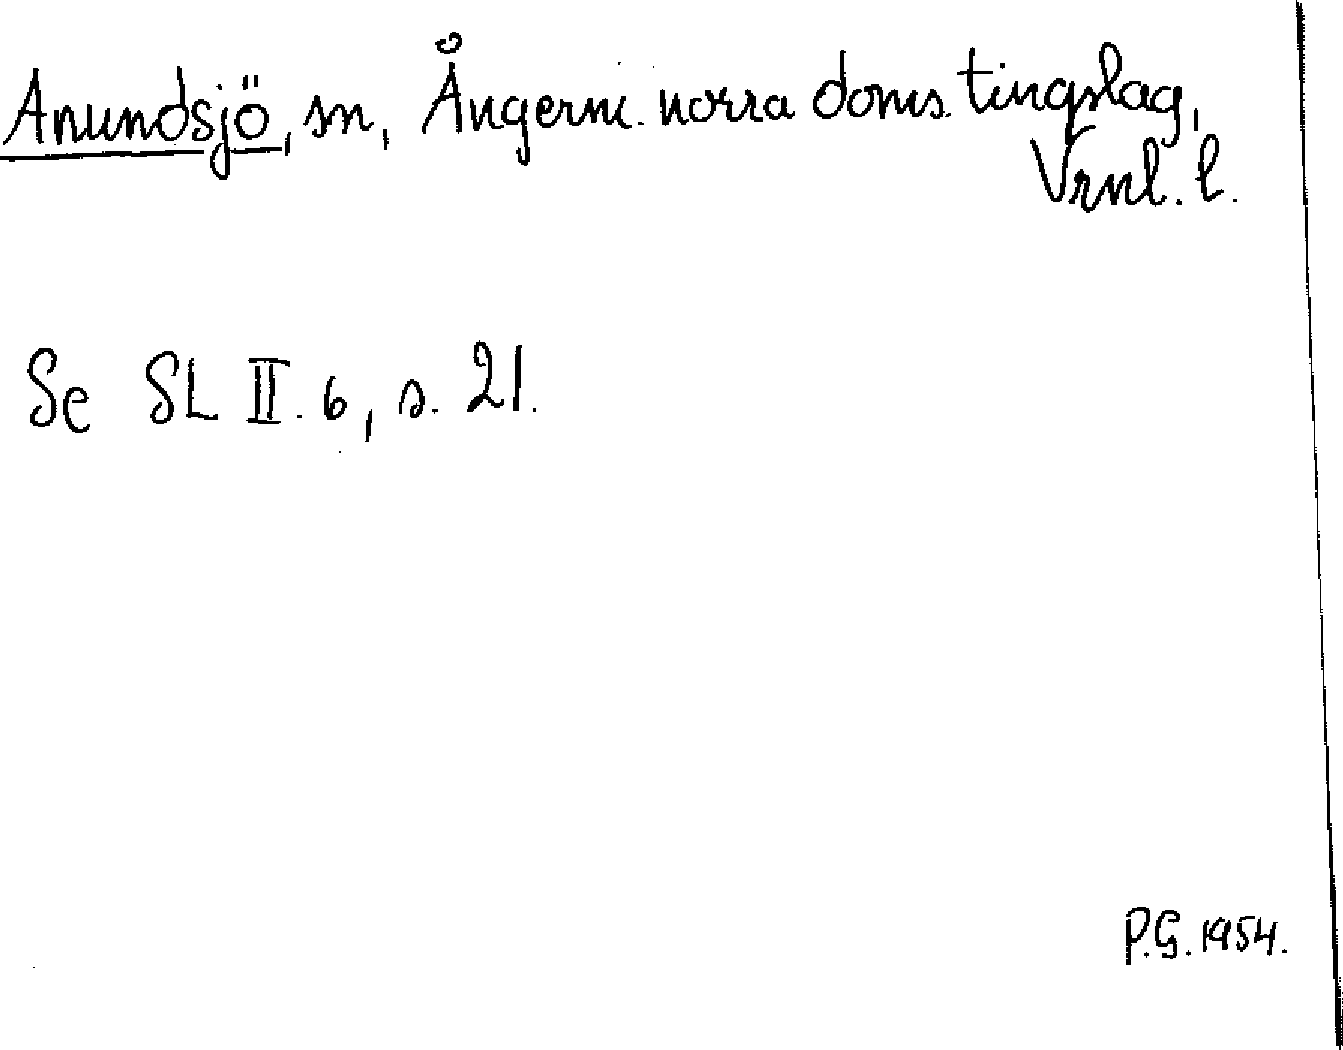 Anundsjö, sn, Ångerm. norra doms. tingslag,
Vrnl. l.
Se SL II. 6, s. 21.
P.G. 1954.